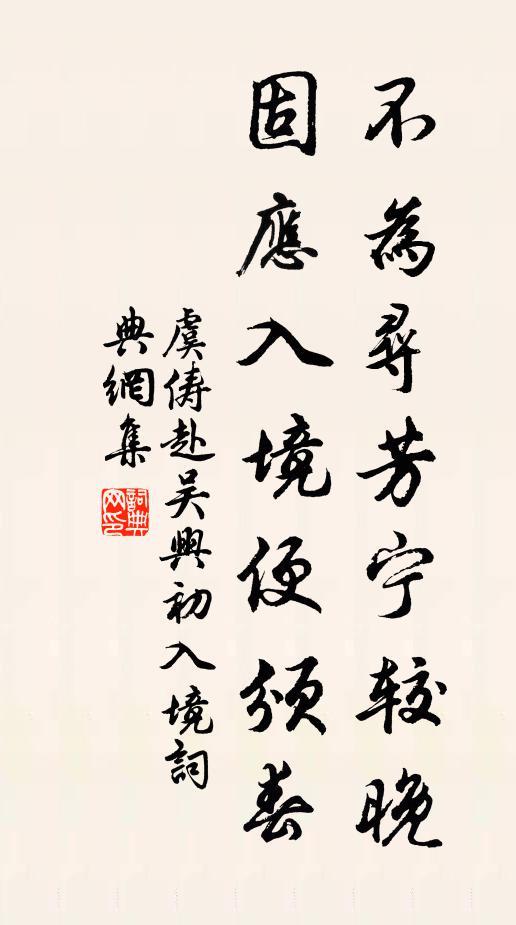 不為尋芳宁較晚
固應入境便頒春
虞儔赴吴興初入境詞
典網集
詞典
网印